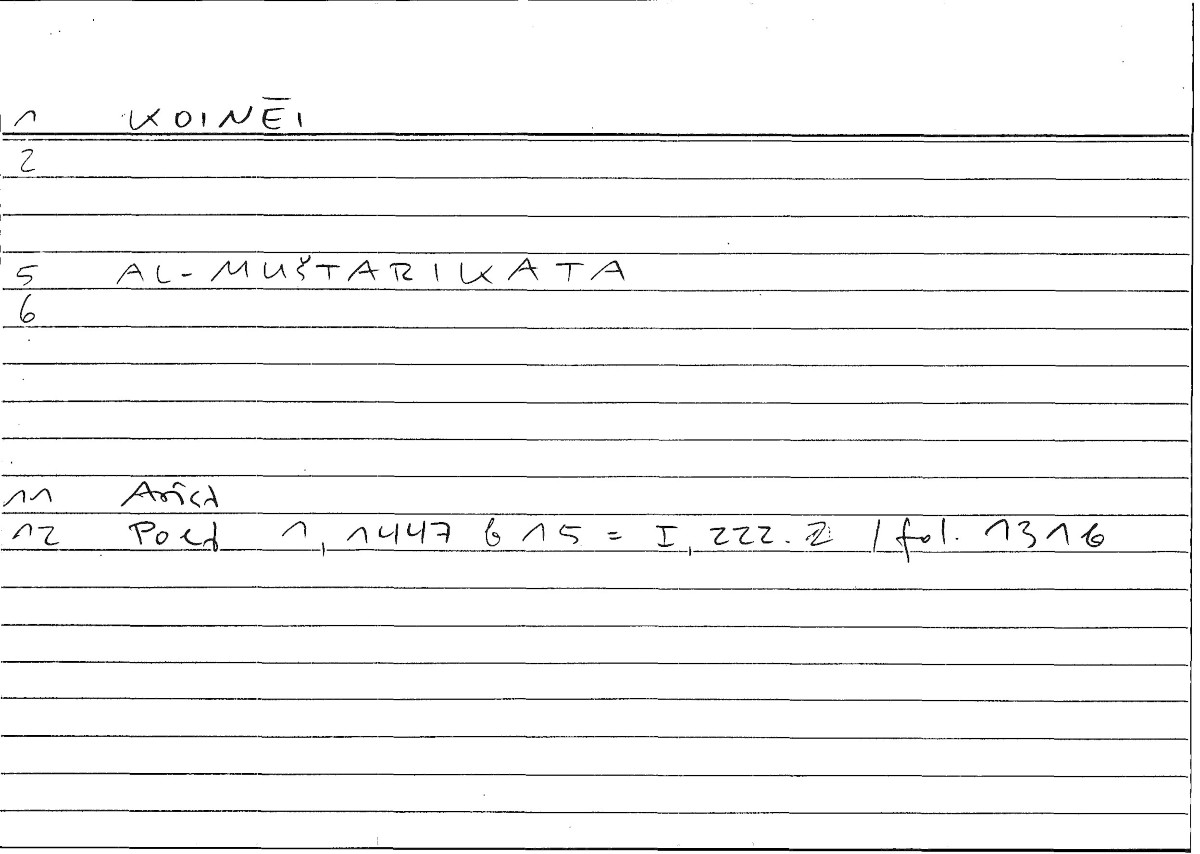 1 KOINĒI
2
5 AL-MUŠTARIKATA
6
11 Arist
12 Poet 1, 1447 b 15 = I, 222.2 / fol. 131b